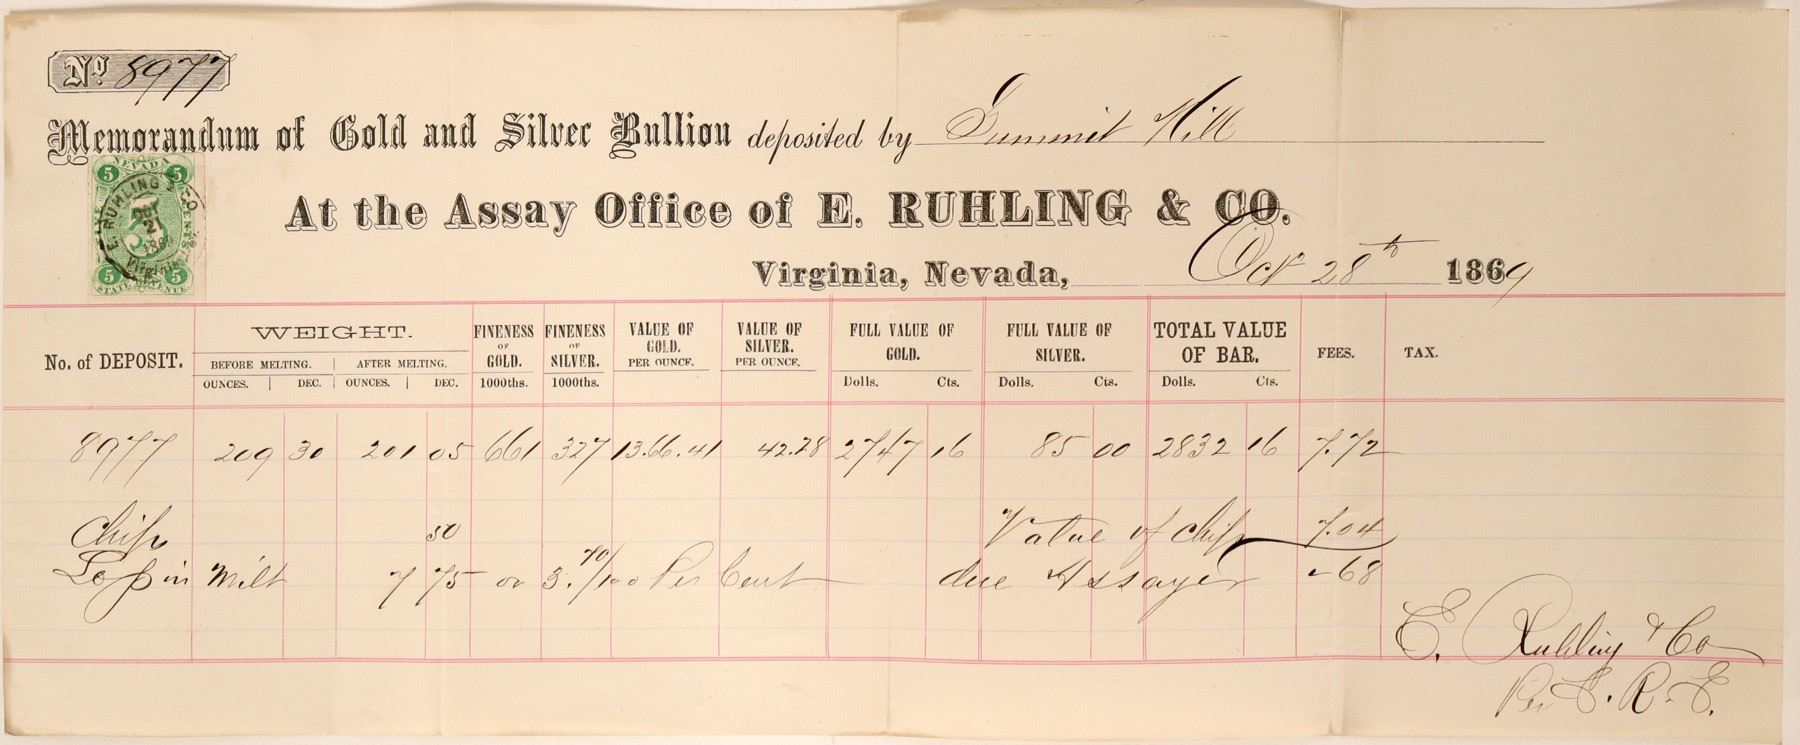 No. 8977
Memorandum of Gold and Silver Bullion deposited by Summit Hill
NEVADA
5 5
E. RUHLING & CO.
OCT
21
Virginia
5 5
STATE REVENUE
At the Assay Office of E. RUHLING & CO.
Virginia, Nevada, Oct 28th 1869
No. of DEPOSIT. WEIGHT. FINENESS OF GOLD. FINENESS OF SILVER. VALUE OF GOLD. PER OUNCE. VALUE OF SILVER. PER OUNCE. FULL VALUE OF GOLD. FULL VALUE OF SILVER. TOTAL VALUE OF BAR. FEES. TAX.
BEFORE MELTING. AFTER MELTING.
OUNCES. DEC. OUNCES. DEC. 1000ths. 1000ths. Dolls. Cts. Dolls. Cts. Dolls. Cts.
8977 209 30 201 05 661 327 13.66.41 42.28 2747 16 85 00 2832 16 7.72
Chips 50 Value of chips 7.04
Loss in Melt 7 75 or 3.70/100 Per Cent due Assayer 68
E. Ruhling & Co
Per